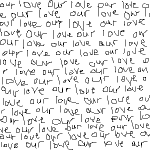 our love our love our love o
our love our love our love
our love our love our love
love our love our love our
our love our love our love
love our love our love our
our love our love our love
our love our love our love
love our love our love our
love our love our love
our love our love our love
love our love our love
love our love our love our
love our love our love our
our love our love our love
love our love our love our